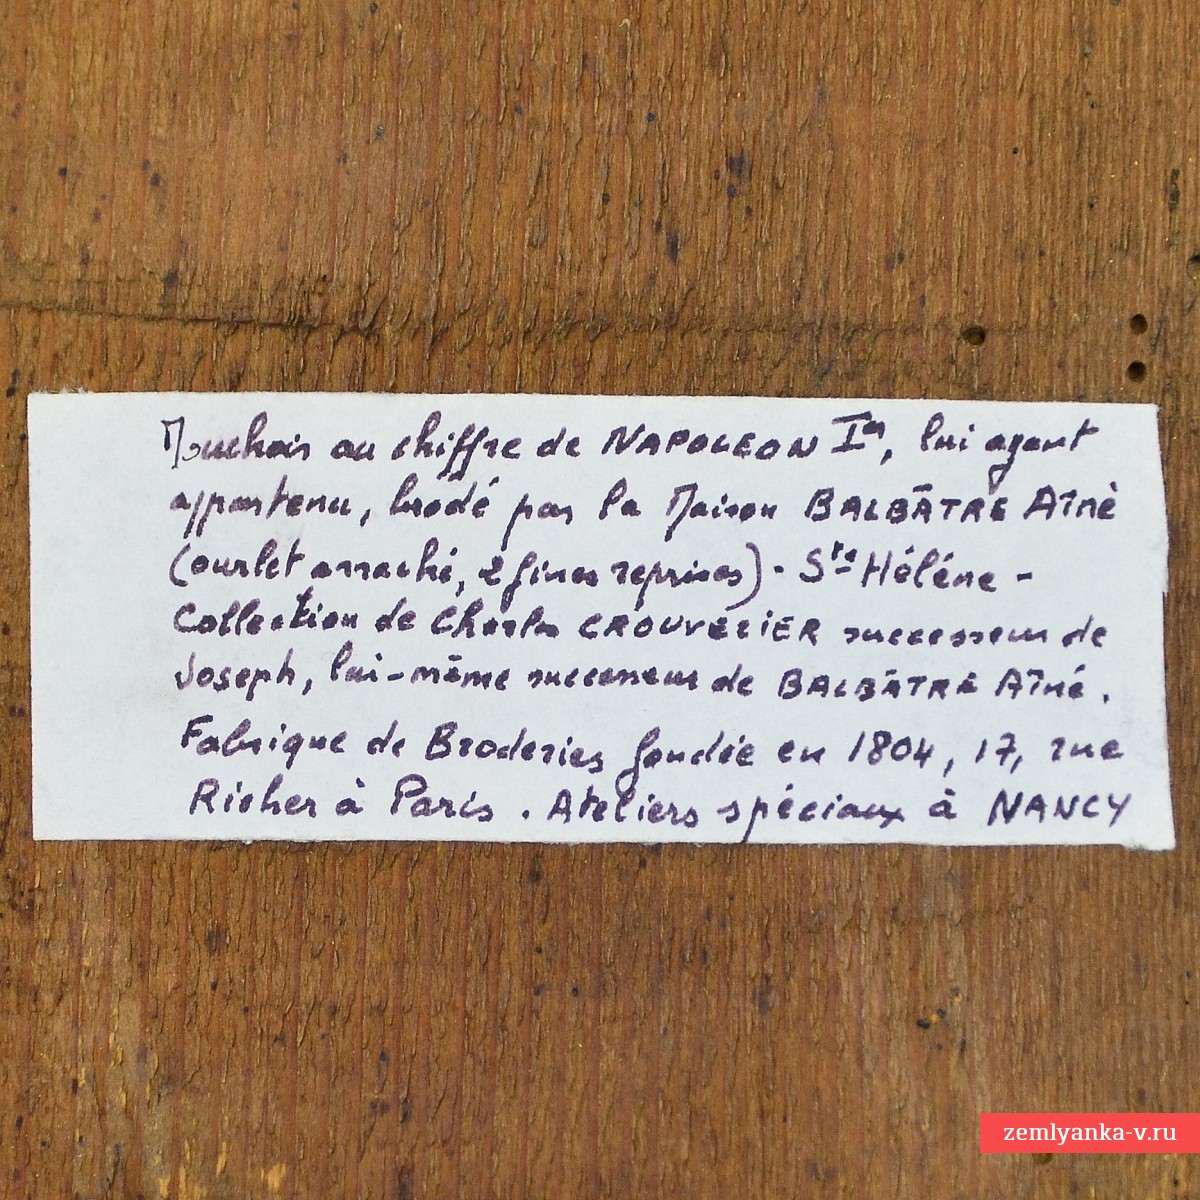 Mouchoir au chiffre de NAPOLEON Ier, lui ayant
appartenu, brodé par la Maison BALBÂTRE Aîné
(ourlet arraché, 2 fines reprises) - Ste Hélène -
Collection de Charles CROUVEZIER successeur de
Joseph, lui-même successeur de BALBÂTRE Aîné.
Fabrique de Broderies fondée en 1804, 17, rue
Richer à Paris. Ateliers spéciaux à NANCY
zemlyanka-v.ru